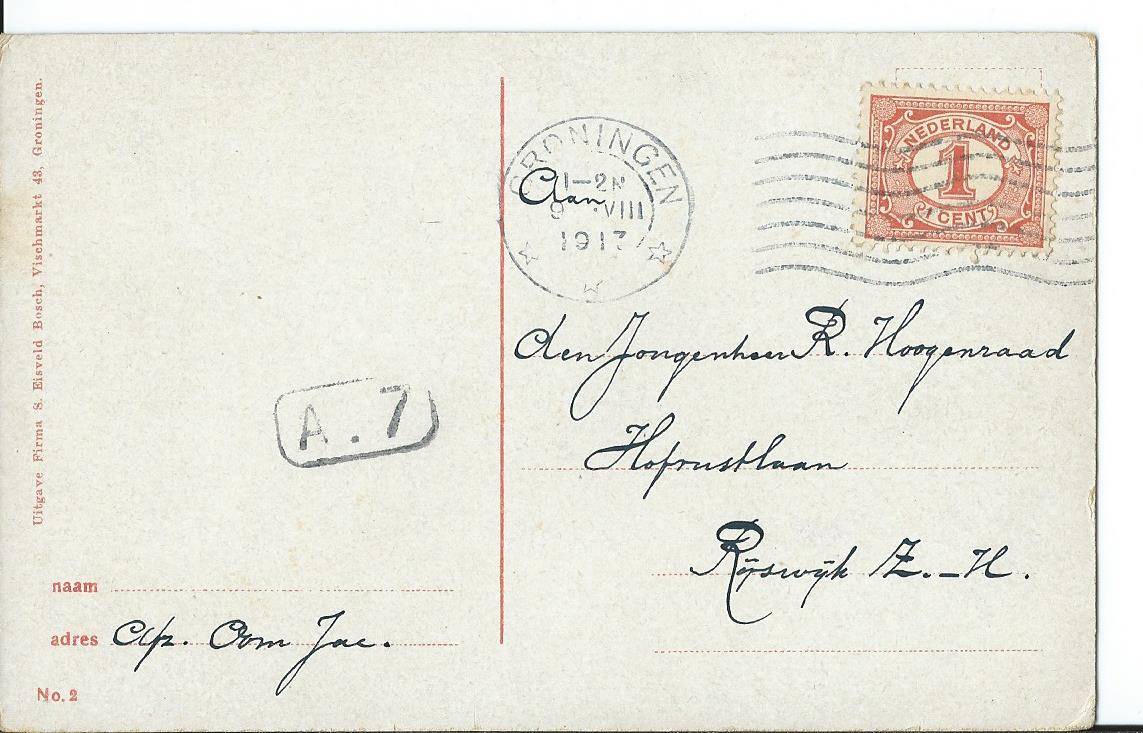 Uitgave Firma S. Eisveld Bosch, Vischmarkt 43, Groningen.
GRONINGEN
1-2N
9 .VIII
1917
NEDERLAND
1
1 CENT
Aan
den Jongenheer R. Hoogenraad
Hofrustlaan
Rijswijk Z.-H.
A. 7
naam
adres Afz. Oom Jac.
No. 2